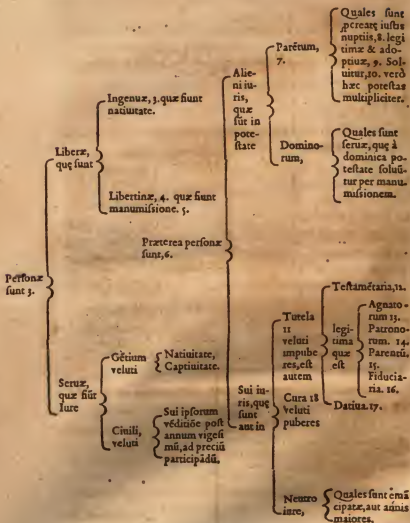 Personæ
sunt 3.
Liberæ,
quę sunt
Ingenuæ, 3. quæ fiunt
natiuitate.
Libertinæ, 4. quæ fiunt
manumissione. 5.
Seruæ,
quæ fiūt
Iure
Gētium
veluti
Natiuitate,
Captiuitate.
Ciuili,
veluti
Sui ipsorum
vēditiōe post
annum vigesi
mū, ad preciū
participādū.
Præterea personæ
sunt, 6.
Alie
ni iu
ris,
quæ
sūt in
pote-
state
Parētum,
7.
Quales sunt
ꝓcreatę iustis
nuptiis, 8. legi
timæ & ado-
ptiuæ, 9. Sol-
uitur, 10. verò
hæc potestas
multipliciter.
Domino-
rum,
Quales sunt
seruæ, quę à
dominica po-
testate soluū-
tur per manu
missionem.
Sui iu-
ris, quę
sunt
aut in
Tutela
11
veluti
impube
res, est
autem
Testamētaria, 12.
legi-
tima
quæ
est
Agnato-
rum 13.
Patrono-
rum. 14.
Parentū.
15.
Fiducia-
ria. 16.
Datiua. 17.
Cura 18
veluti
puberes
Neutro
iure,
Quales sunt emā
cipatæ, aut annis
maiores.